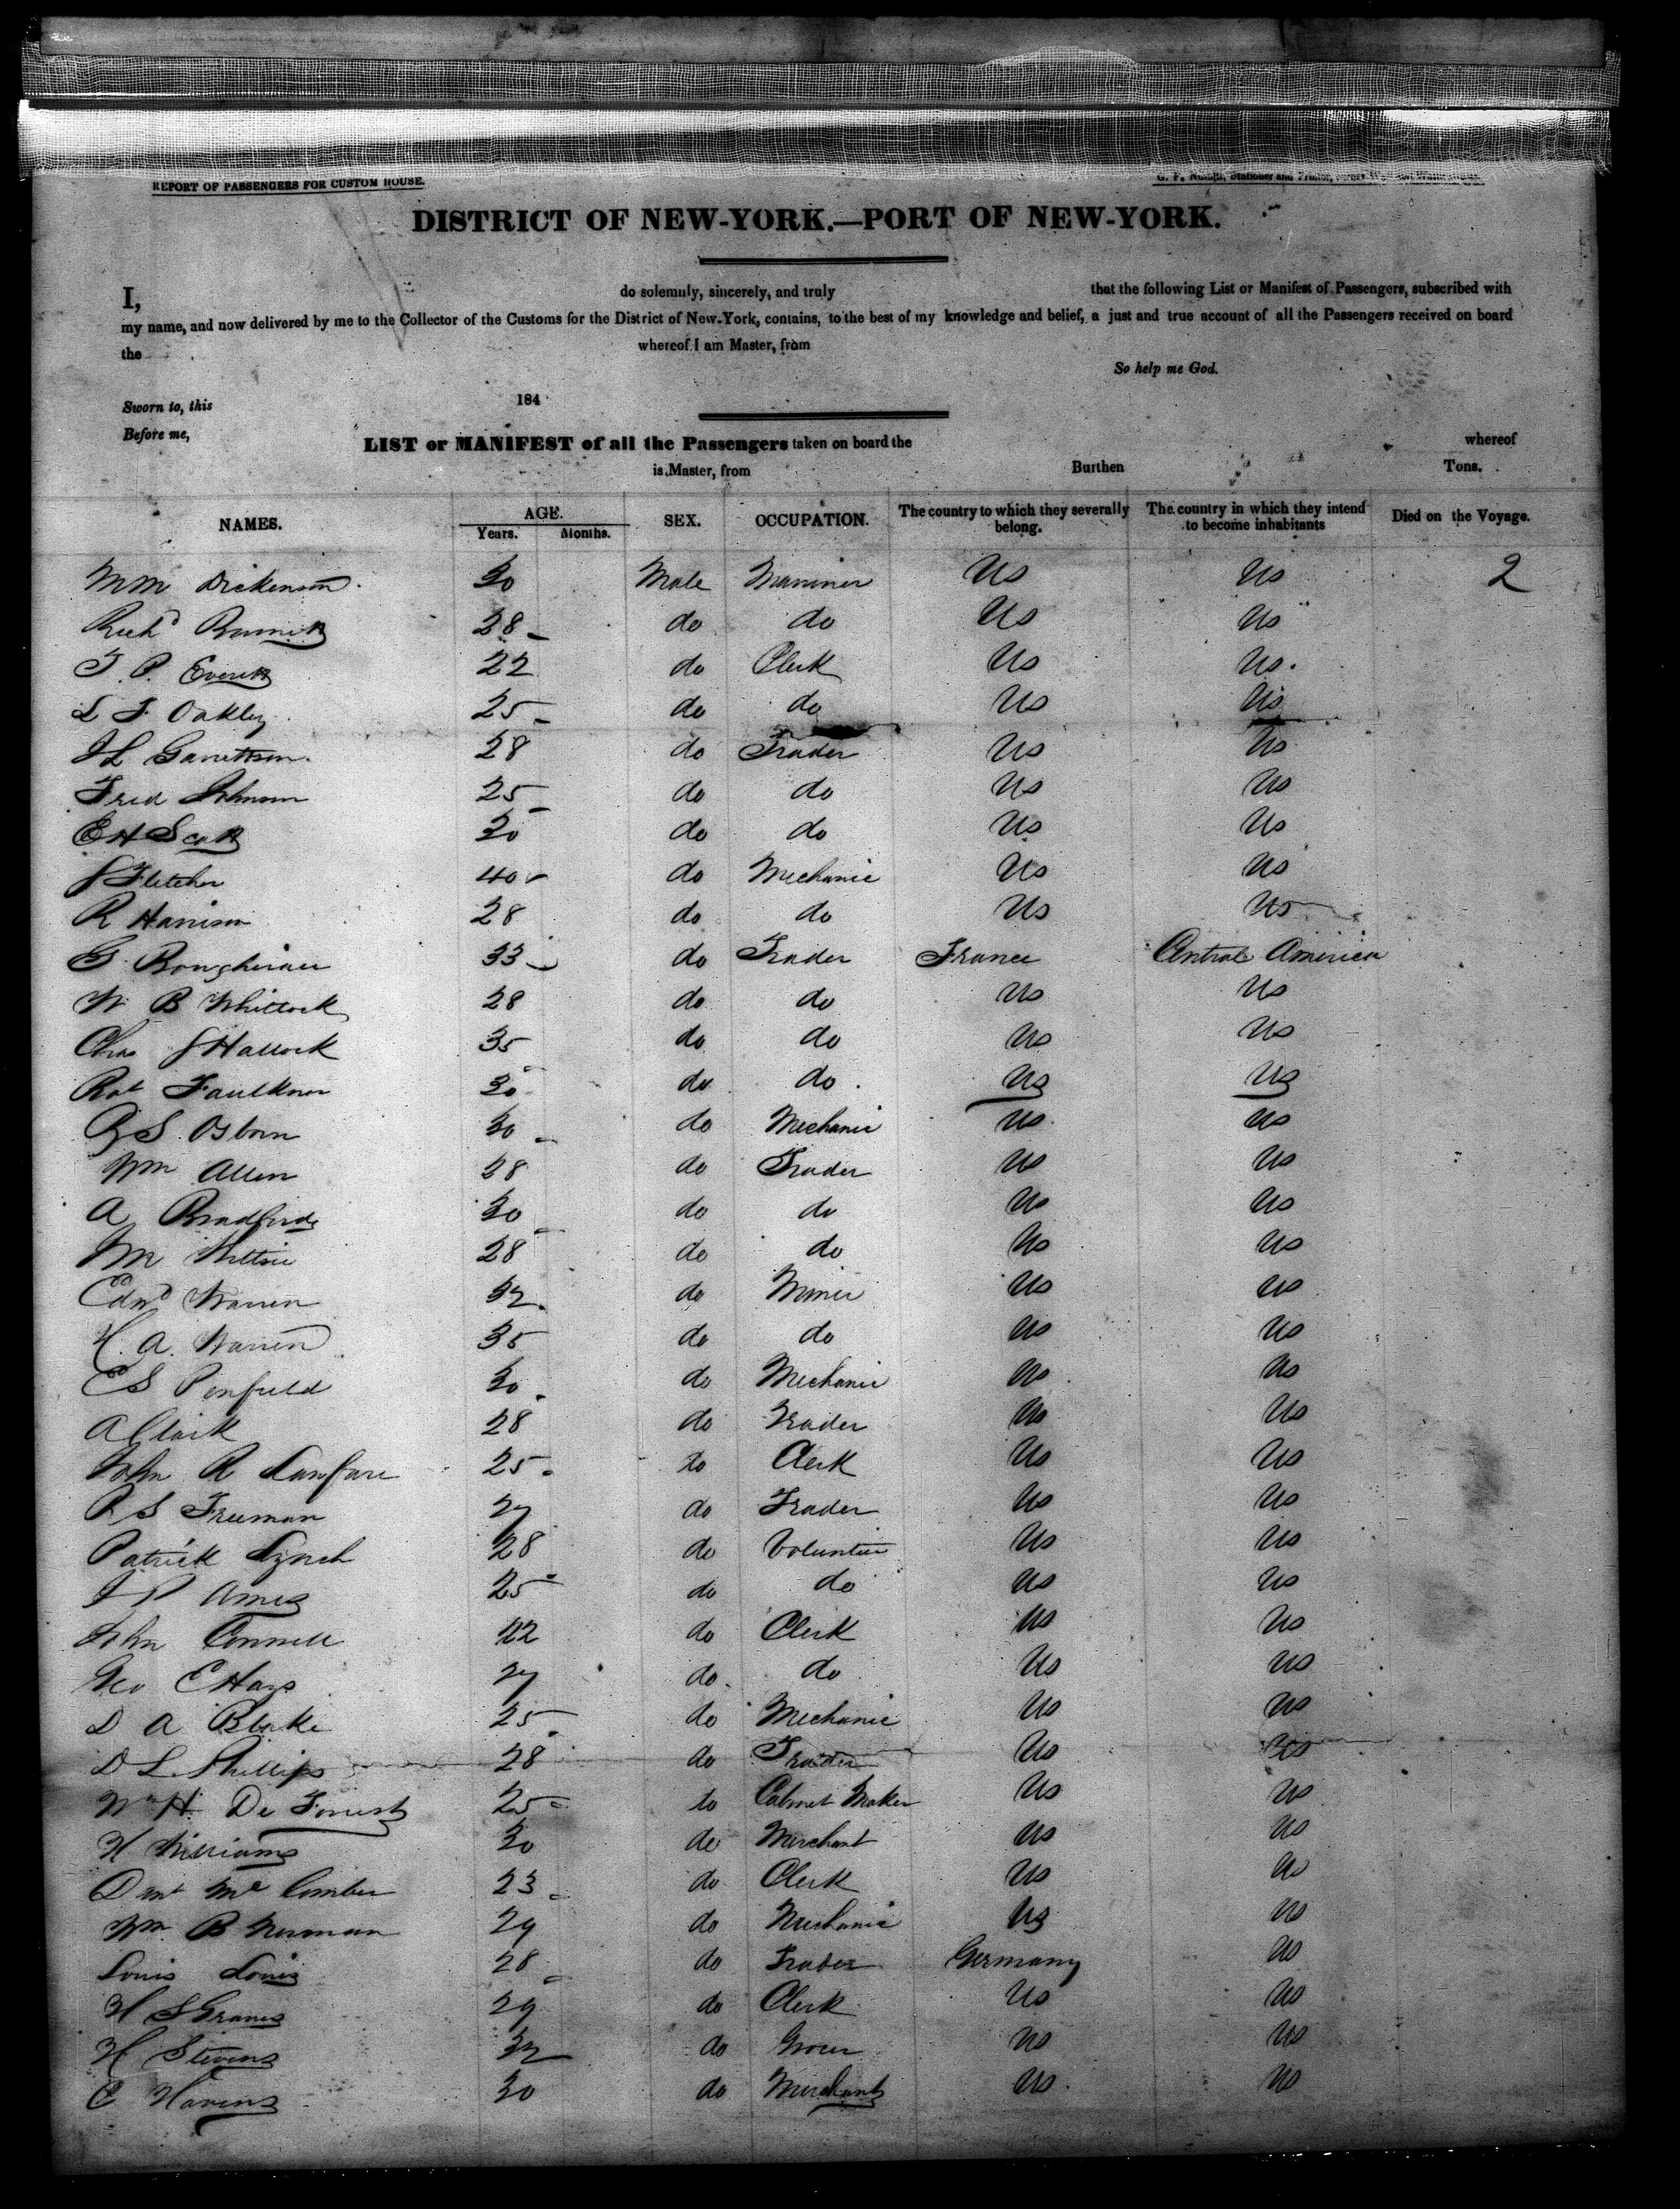 REPORT OF PASSENGERS FOR CUSTOM HOUSE.
DISTRICT OF NEW-YORK.—PORT OF NEW-YORK.
I, do solemnly, sincerely, and truly that the following List or Manifest of Passengers, subscribed with
my name, and now delivered by me to the Collector of the Customs for the District of New-York, contains, to the best of my knowledge and belief, a just and true account of all the Passengers received on board
the whereof I am Master, from
So help me God.
Sworn to, this 184
Before me,
LIST or MANIFEST of all the Passengers taken on board the whereof
is Master, from Burthen Tons.
NAMES. AGE. Years. Months. SEX. OCCUPATION. The country to which they severally belong. The country in which they intend to become inhabitants Died on the Voyage.
Wm Dickenson 30 Male Mariner Us Us 2
Richd 28 do do Us Us
T. P. Everett 22 do Clerk Us Us.
L F. Oakley 25 do do Us Us
J L Garrettson 28 do Trader Us Us
Fred Johnson 25 do do Us Us
E H Scott 30 do do Us Us
J Fletcher 40 do Mechanic Us Us
R Harrison 28 do do Us Us
G 33 do Trader France Central America
W B Whitlock 28 do do Us Us
Chas J Hallock 35 do do Us Us
Rob Faulkner 30 do do Us Us
S. Osborn 30 do Mechanic Us Us
Wm Allen 28 do Trader Us Us
A Bradford 30 do do Us Us
28 do do Us Us
Edwd Warren 32 do Miner Us Us
H. A. Warren 35 do do Us Us
E S Penfield 30 do Mechanic Us Us
A Clark 28 do Trader Us Us
John R Lanfare 25 do Clerk Us Us
P S Freeman 27 do Trader Us Us
Patrick Lynch 28 do Volunteer Us Us
J P Ames 25 do do Us Us
John Connell 22 do Clerk Us Us
Geo C Hays 27 do do Us Us
D A Blake 25 do Mechanic Us Us
D L Phillips 28 do Trader Us Us
Wm H. De Forrest 25 do Cabinet Maker Us Us
H Williams 30 do Merchant Us Us
Danl Mc Comber 23 do Clerk Us Us
Wm. B Newman 29 do Mechanic Us Us
Louis Louis 28 do Trader Germany Us
H S Graves 29 do Clerk Us Us
H Stevens 32 do Grocer Us Us
C Havens 30 do Merchant Us Us